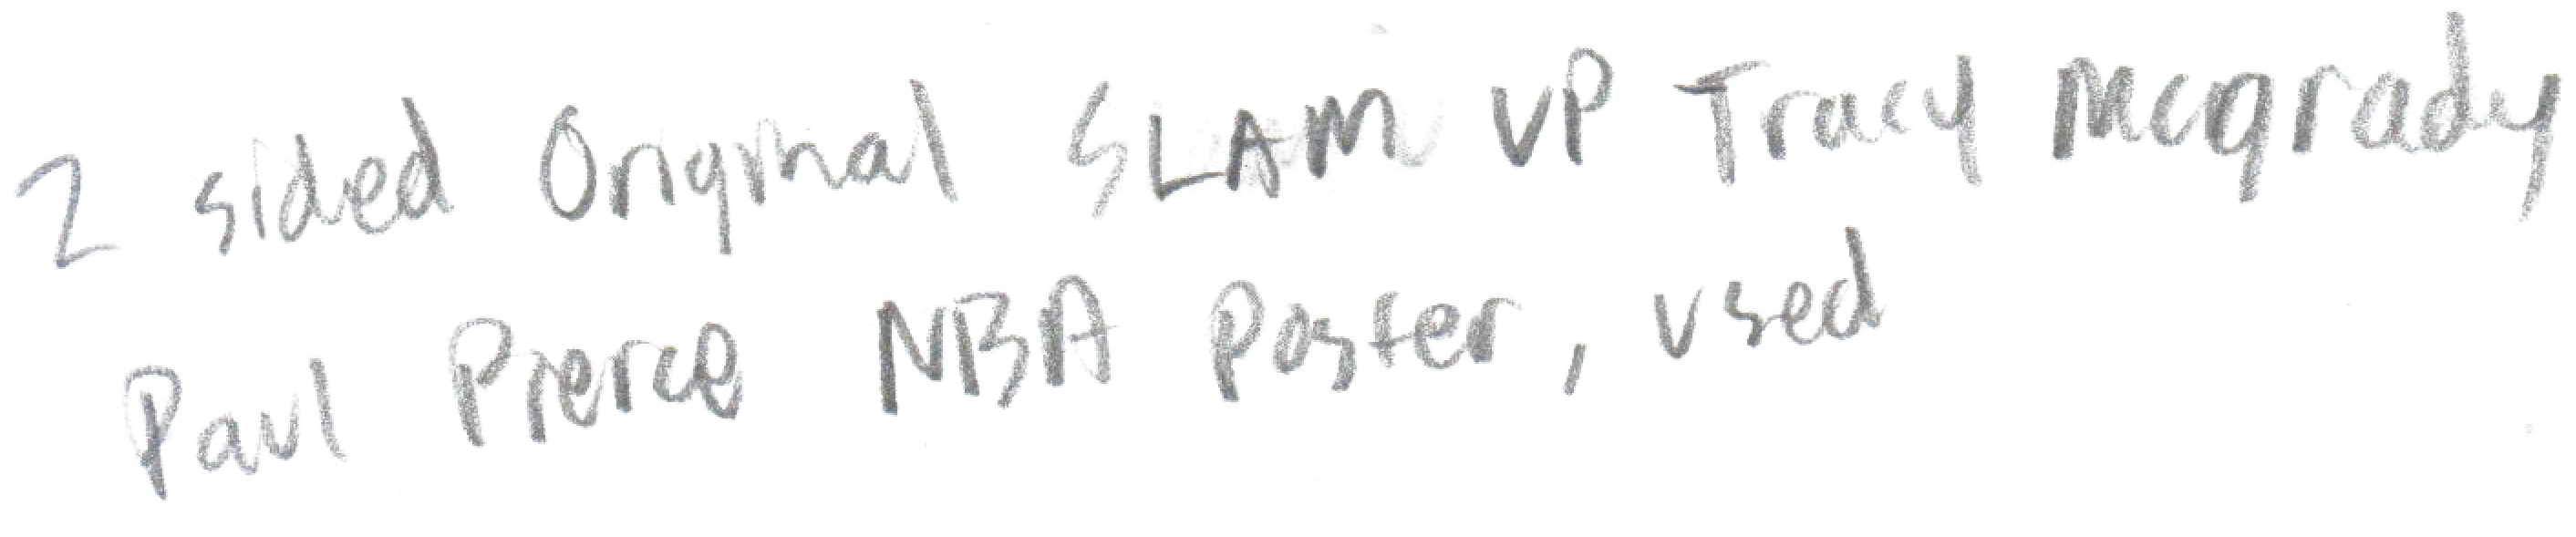 2 sided Original SLAM UP Tracy Mcgrady
Paul Pierce NBA Poster, used